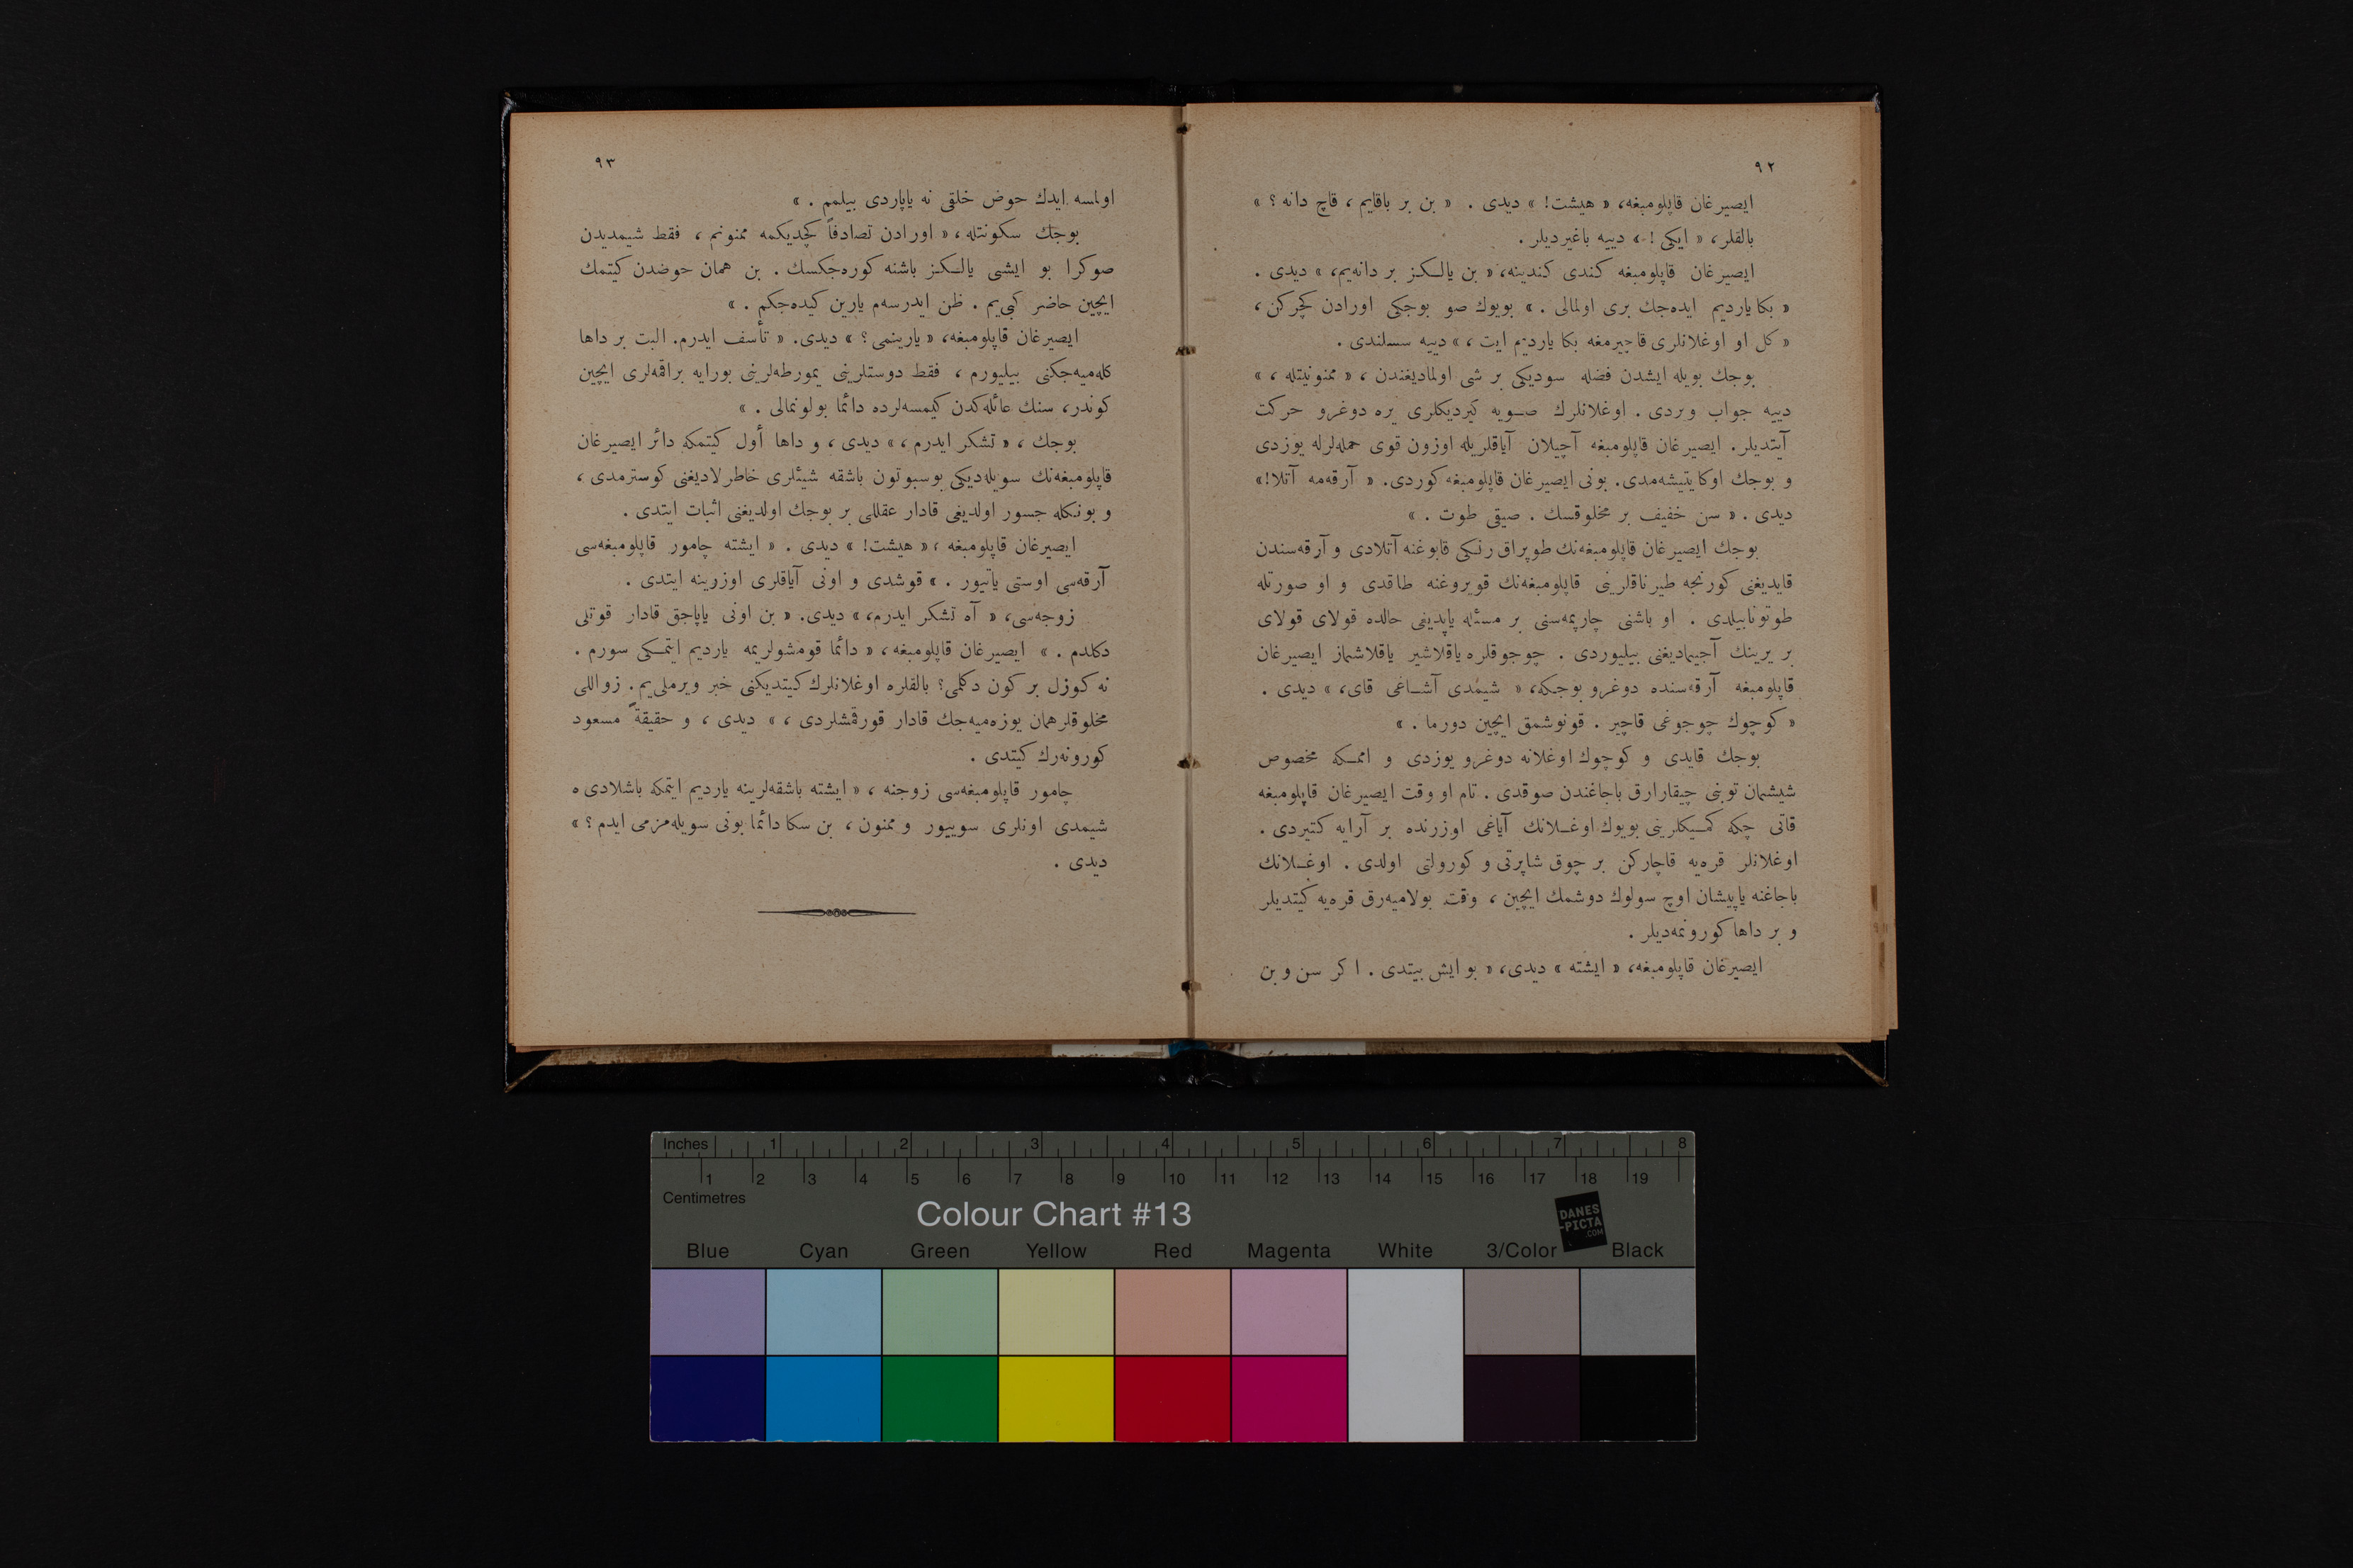 ٩٢
ايصيرغان قاپلومبغه، « هيشت! » ديدى . « بن بر باقايم ، قاچ دانه ؟ »
بالقلر، « ايكى ! » دييه باغيرديلر .
ايصيرغان قاپلومبغه كندى كندينه، « بن يالـكـز بر دانه‌يم، » ديدى .
« بكا يارديم ايده‌جك برى اولمالى . » بويوك صو بوجكى اورادن كچركن ،
« كل او اوغلانلرى قاچيرمغه بكا يارديم ايت ، » دييه سسلندى .
بوجك بويله ايشدن فضله سوديكى بر شى اولماديغندن ، « ممنونيتله ، »
دييه جواب ويردى . اوغلانلرك صـويه كيرديكلرى يره دوغرو حركت
آيتديلر . ايصيرغان قاپلومبغه آچيلان آياقلريله اوزون قوى حمله‌لرله يوزدى
و بوجك اوكا يتيشه‌مدى . بونى ايصيرغان قاپلومبغه كوردى . « آرقه‌مه آتلا! »
ديدى . « سن خفيف بر مخلوقسك . صيقى طوت . »
بوجك ايصيرغان قاپلومبغه‌نك طوپراق رنـكى قابوغنه آتلادى و آرقه‌سندن
قايديغنى كورنجه طيرناقلرينى قاپلومبغه‌نك قويروغنه طاقدى و او صورتله
طوتونابيلدى . او باشنى چارپمه‌سنى بر مسئله ياپديغى حالده قولاى قولاى
بر يرينك آجيماديغنى بيليوردى . چوجوقلره ياقلاشير ياقلاشماز ايصيرغان
قاپلومبغه آرقه‌سنده دوغرو بوجكه، « شيمدى آشـاغى قاى، » ديدى .
« كوچوك چوجوغى قاچير . قونوشمق ايچين دورما . »
بوجك قايدى و كوچوك اوغلانه دوغرو يوزدى و اممـكه مخصوص
شيشمان توبنى چيقارارق باجاغندن صوقدى . تام او وقت ايصيرغان قاپلومبغه
قاتى چكه كمـيكلرينى بويوك اوغـلانك آياغى اوزرنده بر آرايه كتيردى .
اوغلانلر قره‌يه قاچاركن بر چوق شاپرتى و كورولتى اولدى . اوغـلانك
باجاغنه ياپيشان اوچ سولوك دوشمك ايچين ، وقت بولاميه‌رق قره‌يه كيتديلر
و بر داها كورونمه‌ديلر .
ايصيرغان قاپلومبغه، « ايشته » ديدى، « بو ايش بيتدى . اكر سن و بن
٩٣
اولمسه ايدك حوض خلقى نه ياپاردى بيلمم . »
بوجك سكونتله ، « اورادن تصادفاً كچديكمه ممنونم ، فقط شيمديدن
صوكرا بو ايشى يالـكـز باشنه كوره‌جكسك . بن همان حوضدن كيتمك
ايچين حاضر كبى‌يم . ظن ايدرسه‌م يارين كيده‌جكم . »
ايصيرغان قاپلومبغه، « يارينمى ؟ » ديدى. « تأسف ايدرم. البت بر داها
كله‌ميه‌جكنى بيليورم ، فقط دوستلرينى يمورطه‌لرينى بورايه براقمه‌لرى ايچين
كوندر، سنك عائله‌كدن كيمسه‌لرده دائما بولونمالى . »
بوجك ، « تشكر ايدرم ، » ديدى ، و داها أول كيتمكه دائر ايصيرغان
قاپلومبغه‌نك سويله‌ديكى بوسبوتون باشقه شيئلرى خاطرلاديغنى كوسترمدى ،
و بونكله جسور اولديغى قادار عقللى بر بوجك اولديغنى اثبات ايتدى .
ايصيرغان قاپلومبغه ، « هيشت! » ديدى . « ايشته چامور قاپلومبغه‌سى
آرقه‌سى اوستى ياتيور . » قوشدى و اونى آياقلرى اوزرينه ايتدى .
زوجه‌سى، « آه تشكر ايدرم، » ديدى. « بن اونى ياپاجق قادار قوتلى
دكلدم . » ايصيرغان قاپلومبغه، « دائما قومشولريمه يارديم ايتمـكى سورم .
نه كوزل بر كون دكلمى؟ بالقلره اوغلانلرك كيتديكنى خبر ويرملى‌يم. زواللى
مخلوقلر همان يوزه‌ميه‌جك قادار قورقمشلردى ، » ديدى ، و حقيقةً مسعود
كورونه‌رك كيتدى .
چامور قاپلومبغه‌سى زوجنه ، « ايشته باشقه‌لرينه يارديم ايتمكه باشلادى ه
شيمدى اونلرى سوييور و ممنون ، بن سكا دائما بونى سويله‌مزمى ايدم ؟ »
ديدى .
Inches 1 2 3 4 5 6 7 8
1 2 3 4 5 6 7 8 9 10 11 12 13 14 15 16 17 18 19
Centimetres
Colour Chart #13
DANES
-PICTA
.COM
Blue Cyan Green Yellow Red Magenta White 3/Color Black